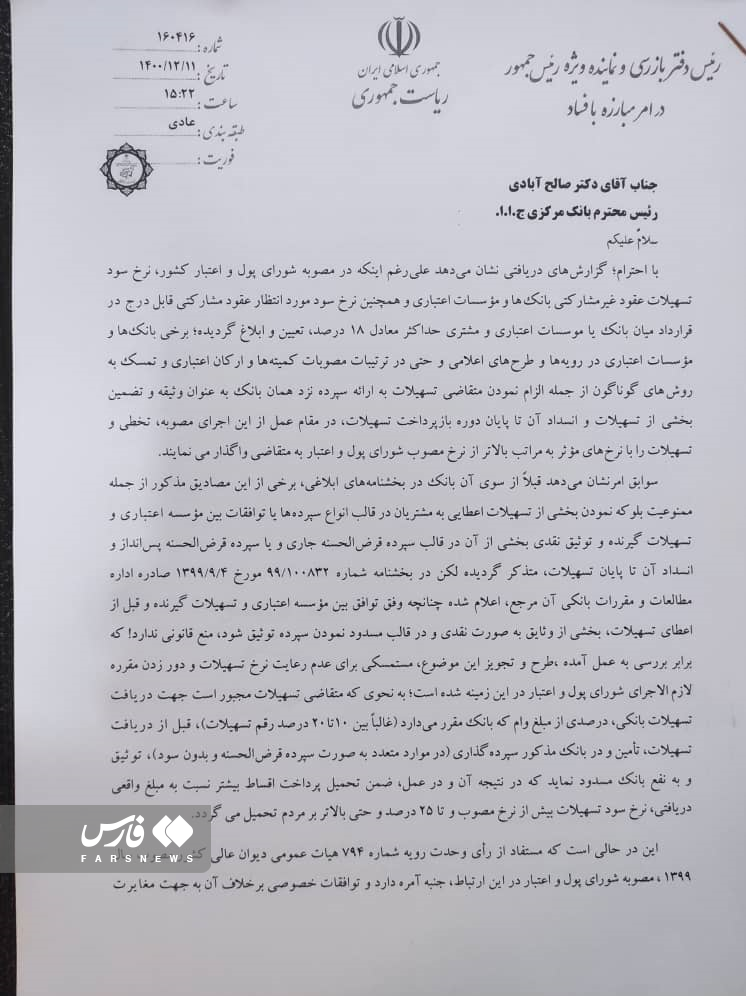 رئیس دفتر بازرسی و نماینده ویژه رئیس جمهور
در امر مبارزه با فساد
جمهوری اسلامی ایران
ریاست جمهوری
شماره: ۱۶۰۴۱۶
تاریخ: ۱۴۰۰/۱۲/۱۱
ساعت: ۱۵:۲۲
طبقه بندی: عادی
فوریت:
جناب آقای دکتر صالح آبادی
رئیس محترم بانک مرکزی ج.ا.ا.
سلامٌ علیکم
با احترام؛ گزارش‌های دریافتی نشان می‌دهد علی‌رغم اینکه در مصوبه شورای پول و اعتبار کشور، نرخ سود
تسهیلات عقود غیرمشارکتی بانک‌ها و مؤسسات اعتباری و همچنین نرخ سود مورد انتظار عقود مشارکتی قابل درج در
قرارداد میان بانک یا موسسات اعتباری و مشتری حداکثر معادل ۱۸ درصد، تعیین و ابلاغ گردیده؛ برخی بانک‌ها و
مؤسسات اعتباری در رویه‌ها و طرح‌های اعلامی و حتی در ترتیبات مصوبات کمیته‌ها و ارکان اعتباری و تمسک به
روش‌های گوناگون از جمله الزام نمودن متقاضی تسهیلات به ارائه سپرده نزد همان بانک به عنوان وثیقه و تضمین
بخشی از تسهیلات و انسداد آن تا پایان دوره بازپرداخت تسهیلات، در مقام عمل از این اجرای مصوبه، تخطی و
تسهیلات را با نرخ‌های مؤثر به مراتب بالاتر از نرخ مصوب شورای پول و اعتبار به متقاضی واگذار می نمایند.
سوابق امرنشان می‌دهد قبلاً از سوی آن بانک در بخشنامه‌های ابلاغی، برخی از این مصادیق مذکور از جمله
ممنوعیت بلوکه نمودن بخشی از تسهیلات اعطایی به مشتریان در قالب انواع سپرده‌ها یا توافقات بین مؤسسه اعتباری و
تسهیلات گیرنده و توثیق نقدی بخشی از آن در قالب سپرده قرض‌الحسنه جاری و یا سپرده قرض‌الحسنه پس‌انداز و
انسداد آن تا پایان تسهیلات، متذکر گردیده لکن در بخشنامه شماره ۹۹/۱۰۰۸۳۲ مورخ ۱۳۹۹/۹/۴ صادره اداره
مطالعات و مقررات بانکی آن مرجع، اعلام شده چنانچه وفق توافق بین مؤسسه اعتباری و تسهیلات گیرنده و قبل از
اعطای تسهیلات، بخشی از وثایق به صورت نقدی و در قالب مسدود نمودن سپرده توثیق شود، منع قانونی ندارد! که
برابر بررسی به عمل آمده ،طرح و تجویز این موضوع، مستمسکی برای عدم رعایت نرخ تسهیلات و دور زدن مقرره
لازم الاجرای شورای پول و اعتبار در این زمینه شده است؛ به نحوی که متقاضی تسهیلات مجبور است جهت دریافت
تسهیلات بانکی، درصدی از مبلغ وام که بانک مقرر می‌دارد (غالباً بین ۱۰تا۲۰ درصد رقم تسهیلات)، قبل از دریافت
تسهیلات، تأمین و در بانک مذکور سپرده گذاری (در موارد متعدد به صورت سپرده قرض‌الحسنه و بدون سود)، توثیق
و به نفع بانک مسدود نماید که در نتیجه آن و در عمل، ضمن تحمیل پرداخت اقساط بیشتر نسبت به مبلغ واقعی
دریافتی، نرخ سود تسهیلات بیش از نرخ مصوب و تا ۲۵ درصد و حتی بالاتر بر مردم تحمیل می گردد.
فارس
FARSNEWS
این در حالی است که مستفاد از رأی وحدت رویه شماره ۷۹۴ هیات عمومی دیوان عالی
۱۳۹۹ ، مصوبه شورای پول و اعتبار در این ارتباط، جنبه آمره دارد و توافقات خصوصی برخلاف آن به جهت مغایرت